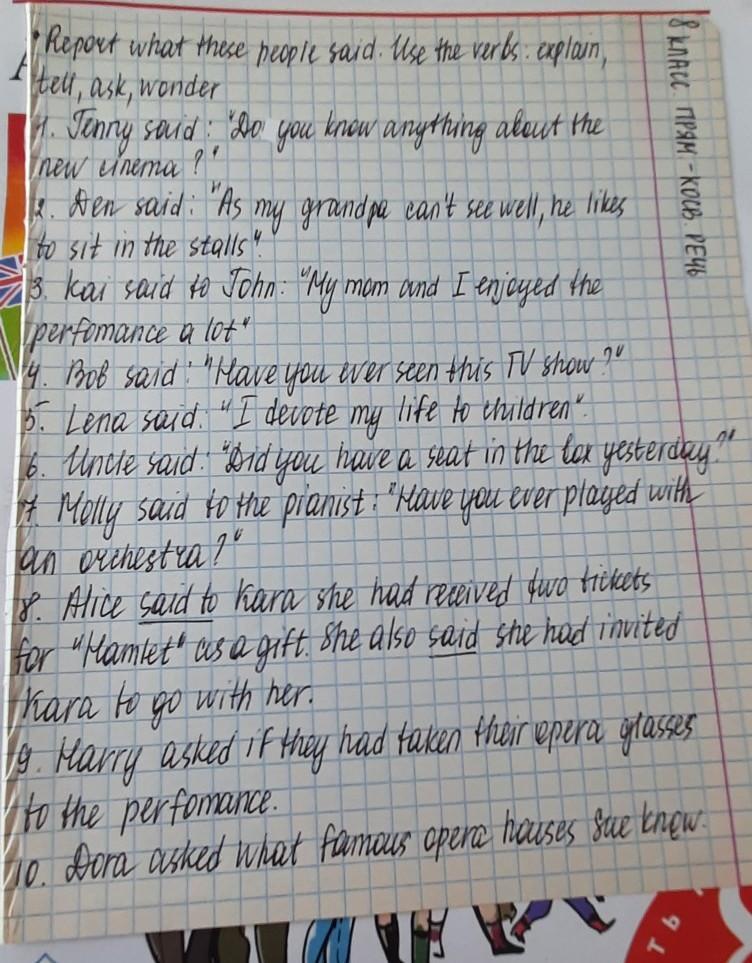 Report what these people said. Use the verbs: explain,
tell, ask, wonder
1. Jenny said: "Do you know anything about the
new cinema?"
2. Den said: "As my grandpa can't see well, he likes
to sit in the stalls".
3. Kai said to John: "My mom and I enjoyed the
perfomance a lot"
4. Bob said: "Have you ever seen this TV show?"
5. Lena said: "I devote my life to children".
6. Uncle said: "Did you have a seat in the box yesterday?"
7. Molly said to the pianist: "Have you ever played with
an orchestra?"
8. Alice said to Kara she had received two tickets
for "Hamlet" as a gift. She also said she had invited
Kara to go with her.
9. Harry asked if they had taken their opera glasses
to the perfomance.
10. Dora asked what famous opera houses Sue knew.
8 КЛАСС. ПРЯМ-КОСВ. РЕЧЬ
ТЬ